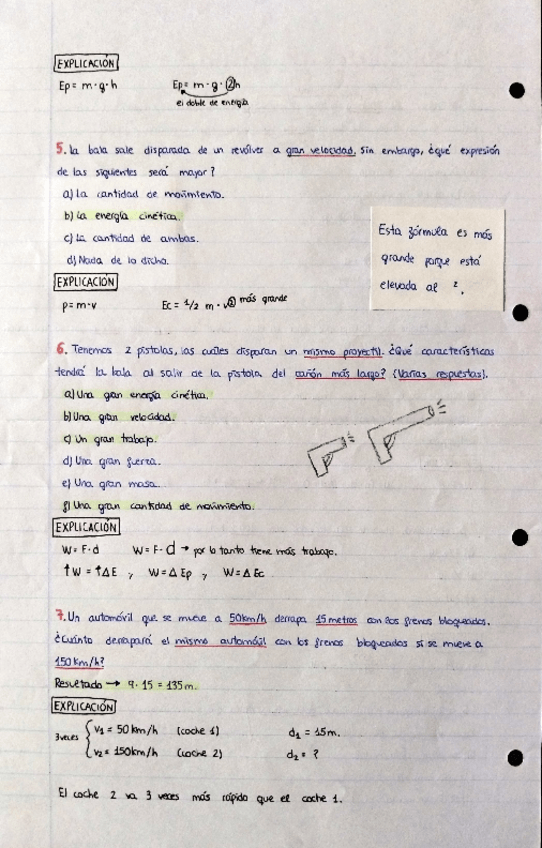 EXPLICACIÓN
Ep = m·g·h
Ep = m·g·2h
el doble de energía
5. La bala sale disparada de un revólver a gran velocidad. Sin embargo, ¿qué expresión
de las siguientes será mayor?
a) La cantidad de movimiento.
b) La energía cinética.
c) La cantidad de ambas.
d) Nada de lo dicho.
Esta fórmula es más
grande porque está
elevada al ².
EXPLICACIÓN
p = m·v
Ec = 1/2 m·v² más grande
6. Tenemos 2 pistolas, las cuáles disparan un mismo proyectil. ¿Qué características
tendrá la bala al salir de la pistola del cañón más largo? (Varias respuestas).
a) Una gran energía cinética.
b) Una gran velocidad.
c) Un gran trabajo.
d) Una gran fuerza.
e) Una gran masa.
f) Una gran cantidad de movimiento.
EXPLICACIÓN
W = F·d
W = F·d → por lo tanto tiene más trabajo.
↑W = ↑ΔE , W = ΔEp y W = ΔEc
7. Un automóvil que se mueve a 50km/h derrapa 15 metros con los frenos bloqueados.
¿Cuánto derrapará el mismo automóvil con los frenos bloqueados si se mueve a
150 km/h?
Resultado → 9·15 = 135 m.
EXPLICACIÓN
3 veces { v1 = 50 km/h (coche 1) d1 = 15m.
v2 = 150km/h (coche 2) d2 = ?
El coche 2 va 3 veces más rápido que el coche 1.